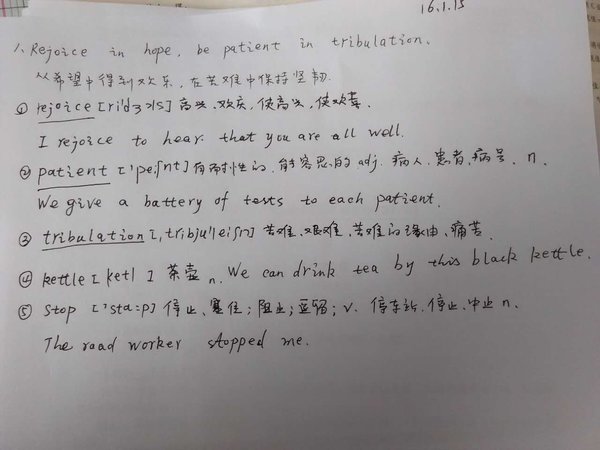 16.1.15
1、Rejoice in hope, be patient in tribulation.
从希望中得到欢乐，在苦难中保持坚韧.
① rejoice [ri'dʒɔis] 高兴、欢庆，使高兴，使欢喜.
I rejoice to hear that you are all well.
② patient ['peiʃnt] 有耐性的，能容忍的 adj. 病人、患者、病号. n.
We give a battery of tests to each patient.
③ tribulation [ˌtribju'leiʃn] 苦难、艰难、苦难的缘由、痛苦
④ kettle [ketl] 茶壶 n. We can drink tea by this black kettle.
⑤ stop ['sta:p] 停止、塞住；阻止；逗留；v. 停车站、停止、中止 n.
The road worker stopped me.